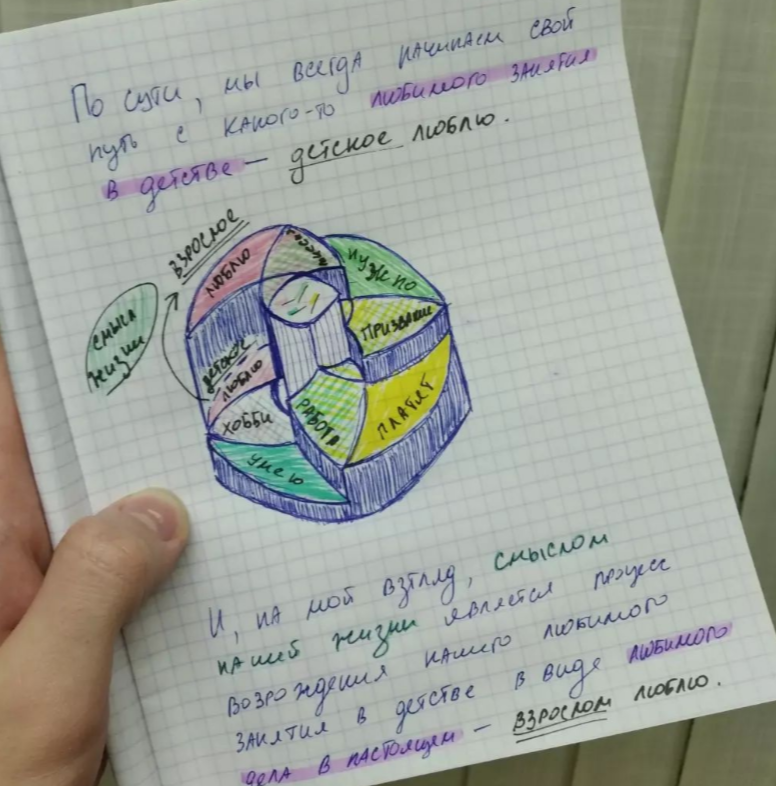 По сути, мы всегда начинаем свой
путь с какого-то любимого занятия
в детстве — детское люблю.
взрослое
люблю
миссия
нужно
смысл
жизни
призвание
детское
люблю
хобби
работа
платят
умею
И, на мой взгляд, смыслом
нашей жизни является процесс
возрождения нашего любимого
занятия в детстве в виде любимого
дела в настоящем — взрослом люблю.